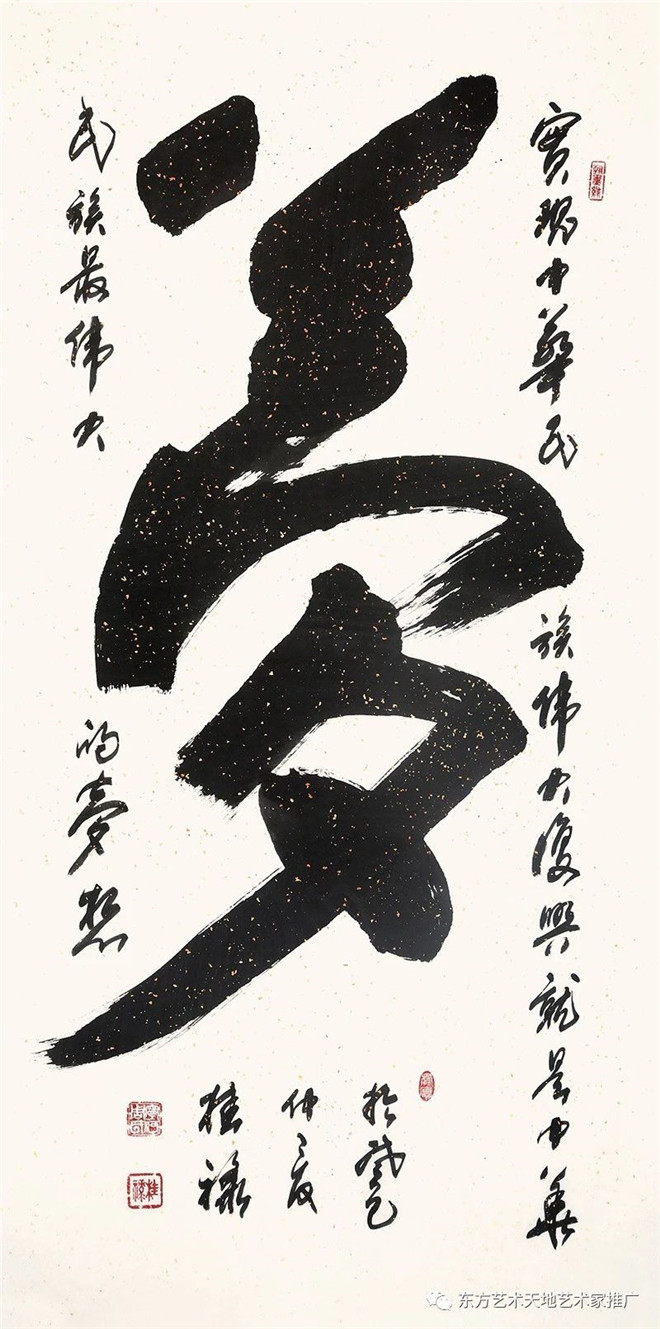 夢
實現中華民族偉大復興就是中華
民族最偉大的夢想
於癸巳
仲之夏
桂祿
东方艺术天地艺术家推广